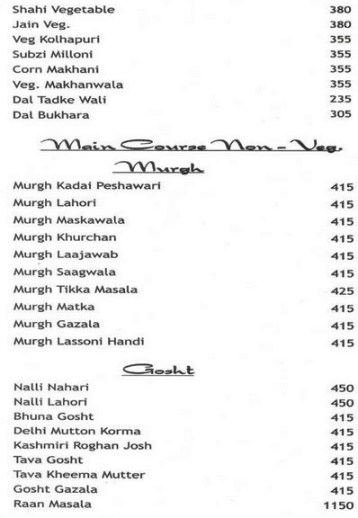 Shahi Vegetable 380
Jain Veg. 380
Veg Kolhapuri 355
Subzi Milloni 355
Corn Makhani 355
Veg. Makhanwala 355
Dal Tadke Wali 235
Dal Bukhara 305
Main Course Non - Veg.
Murgh
Murgh Kadai Peshawari 415
Murgh Lahori 415
Murgh Maskawala 415
Murgh Khurchan 415
Murgh Laajawab 415
Murgh Saagwala 415
Murgh Tikka Masala 425
Murgh Matka 415
Murgh Gazala 415
Murgh Lassoni Handi 415
Gosht
Nalli Nahari 450
Nalli Lahori 450
Bhuna Gosht 415
Delhi Mutton Korma 415
Kashmiri Roghan Josh 415
Tava Gosht 415
Tava Kheema Mutter 415
Gosht Gazala 415
Raan Masala 1150